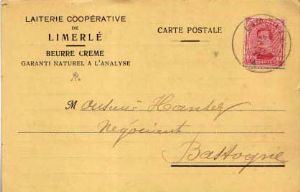 LAITERIE COOPÉRATIVE
DE
LIMERLÉ
BEURRE CREME
GARANTI NATUREL A L'ANALYSE
CARTE POSTALE
Monsieur
Négociant
Bastogne